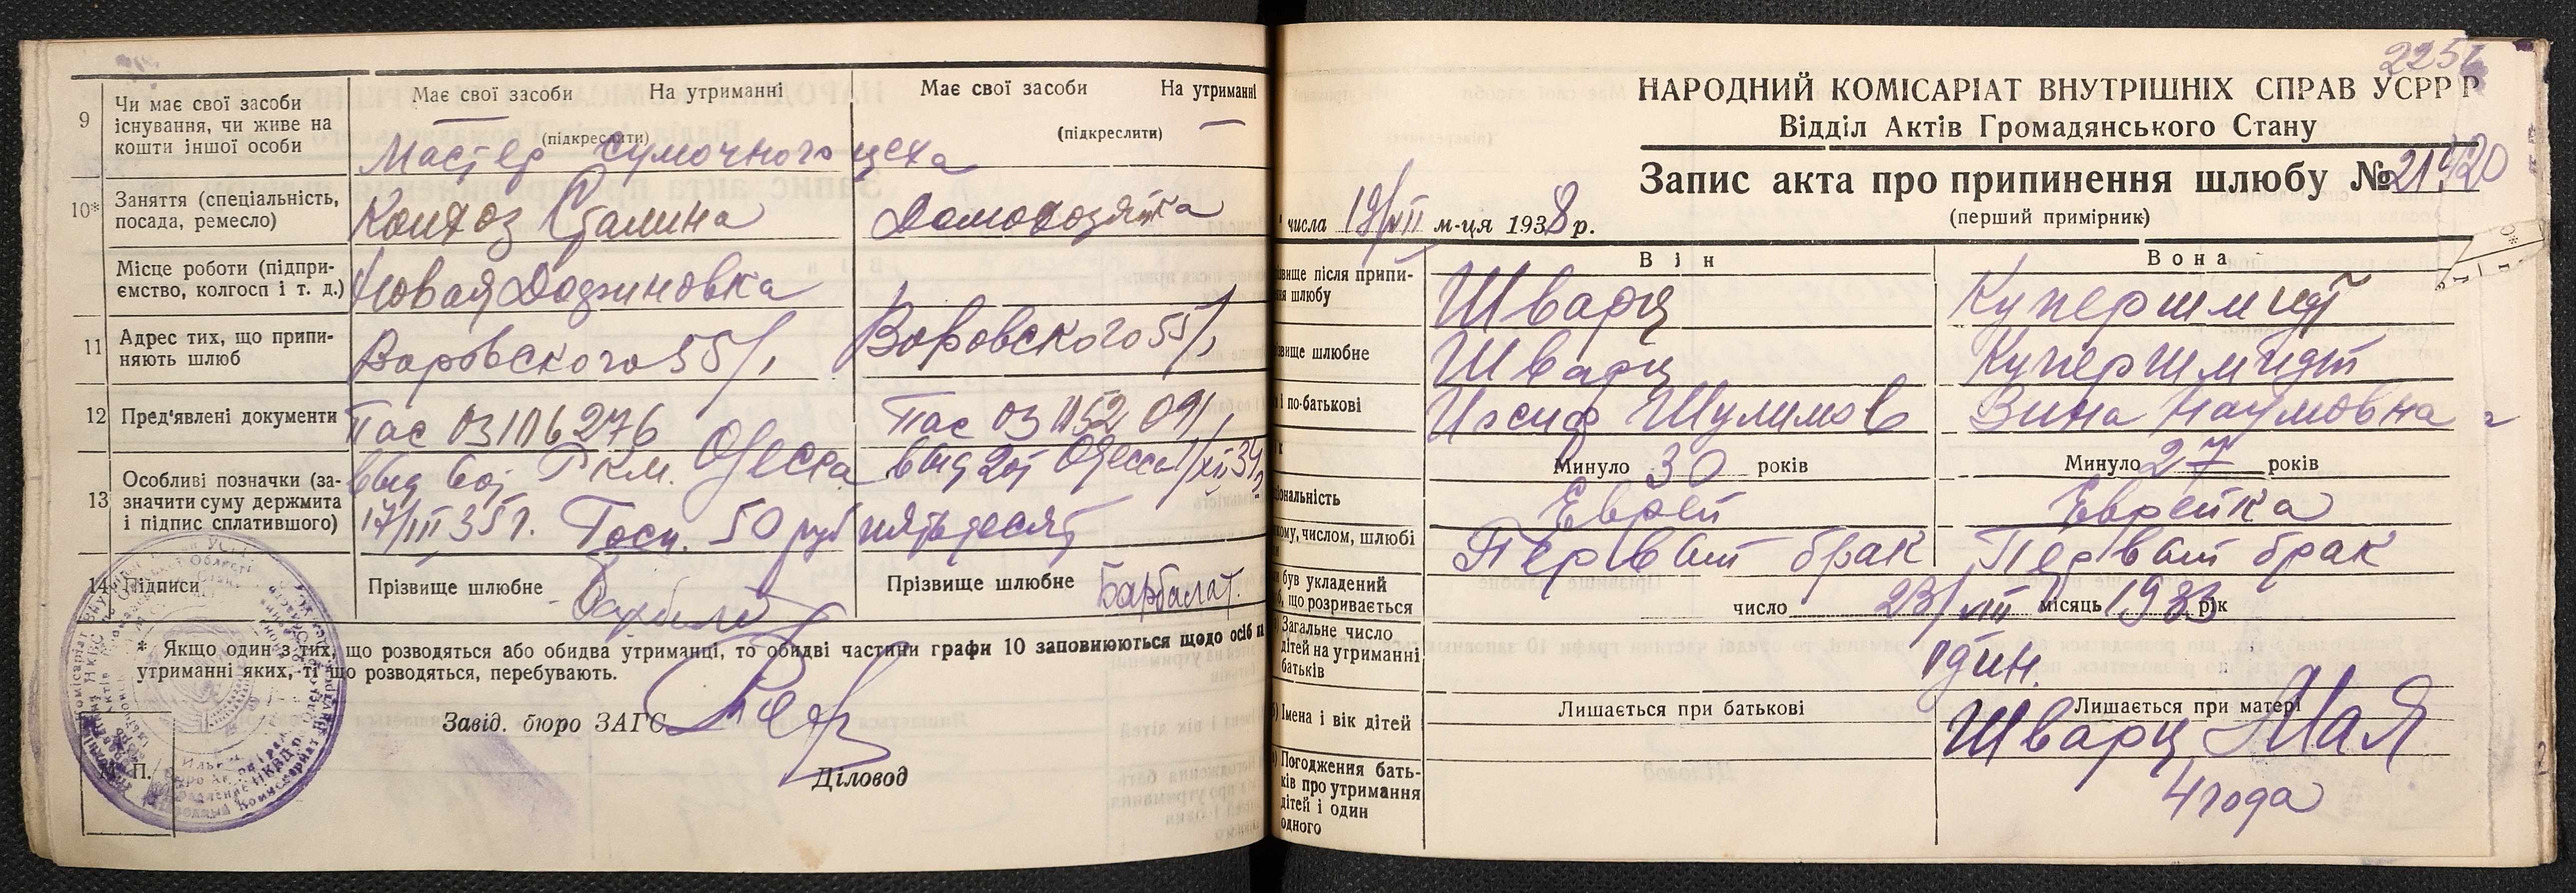 9
Чи має свої засоби існування, чи живе на кошти іншої особи
Має свої засоби На утриманні
(підкреслити)
Має свої засоби На утриманні
(підкреслити)
Мастер сумочного цеха
10*
Заняття (спеціальність, посада, ремесло)
Сталина
Домохозяйка
Місце роботи (підпри-
ємство, колгосп і т. д.)
Новая Дофиновка
11
Адрес тих, що припи-
няють шлюб
Воровского 55/1
Воровского 55/1
12
Пред'явлені документи
Пас 03106276
Пас 03
13
Особливі позначки (за-
значити суму держмита
і підпис сплатившого)
выд 6 от РКМ. Одесса
выд 2 от Одесса
17/III 35 г. Госп. 50 руб пятьдесят
14
Підписи
Прізвище шлюбне Барбалат
Прізвище шлюбне Барбалат.
* Якщо один з тих, що розводяться або обидва утриманці, то обидві частини графи 10 заповнюються щодо осіб
утриманні яких, ті що розводяться, перебувають.
Завід. бюро ЗАГС
Діловод
М. П.
НАРОДНИЙ КОМІСАРІАТ ВНУТРІШНІХ СПРАВ УСРР Р
Відділ Актів Громадянського Стану
Запис акта про припинення шлюбу №
(перший примірник)
числа 19/VII м-ця 1938 р.
Він
Вона
після припи-
шлюбу
Шварц
Купершмидт
шлюбне
Шварц
Купершмидт
і по-батькові
Иосиф Шулимов
Зина Наумовна
Минуло 30 років
Минуло 27 років
Еврей
Еврейка
числом, шлюбі
Первый брак
Первый брак
був укладений
що розривається
число 23/VIII місяць 1933 рік
Загальне число
дітей на утриманні
батьків
один.
Імена і вік дітей
Лишається при батькові
Лишається при матері
Шварц Мая
4 года
Погодження бать-
ків про утримання
дітей і один
одного